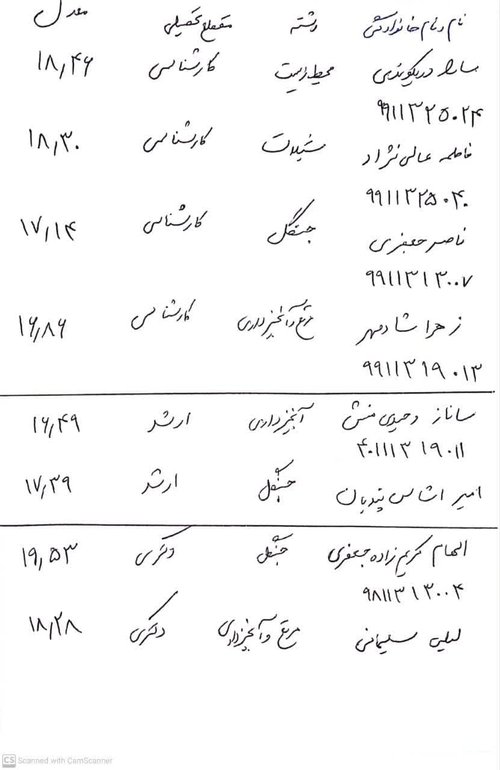 نام و نام خانوادگی رشته مقطع تحصیلی معدل
سارا دریکوندی محیط زیست کارشناسی ۱۸,۴۶
۹۹۱۱۳۲۵۰۲۴
فاطمه عالی نژاد شیلات کارشناسی ۱۸,۳۰
۹۹۱۱۳۲۵۰۴۰
ناصر جعفری جنگل کارشناسی ۱۷,۱۴
۹۹۱۱۳۱۳۰۰۷
زهرا شادمهر مرتع و آبخیزداری کارشناسی ۱۶,۸۶
۹۹۱۱۳۱۹۰۱۳
ساناز وحیدی منش آبخیزداری ارشد ۱۶,۴۹
۴۰۱۱۱۳۱۹۰۱۱
امیر اشاس جنگل ارشد ۱۷,۳۹
الهام کریم زاده جعفری جنگل دکتری ۱۹,۵۳
۹۸۱۱۳۱۳۰۰۴
لیلی سلیمانی مرتع و آبخیزداری دکتری ۱۸,۲۸
CS Scanned with CamScanner